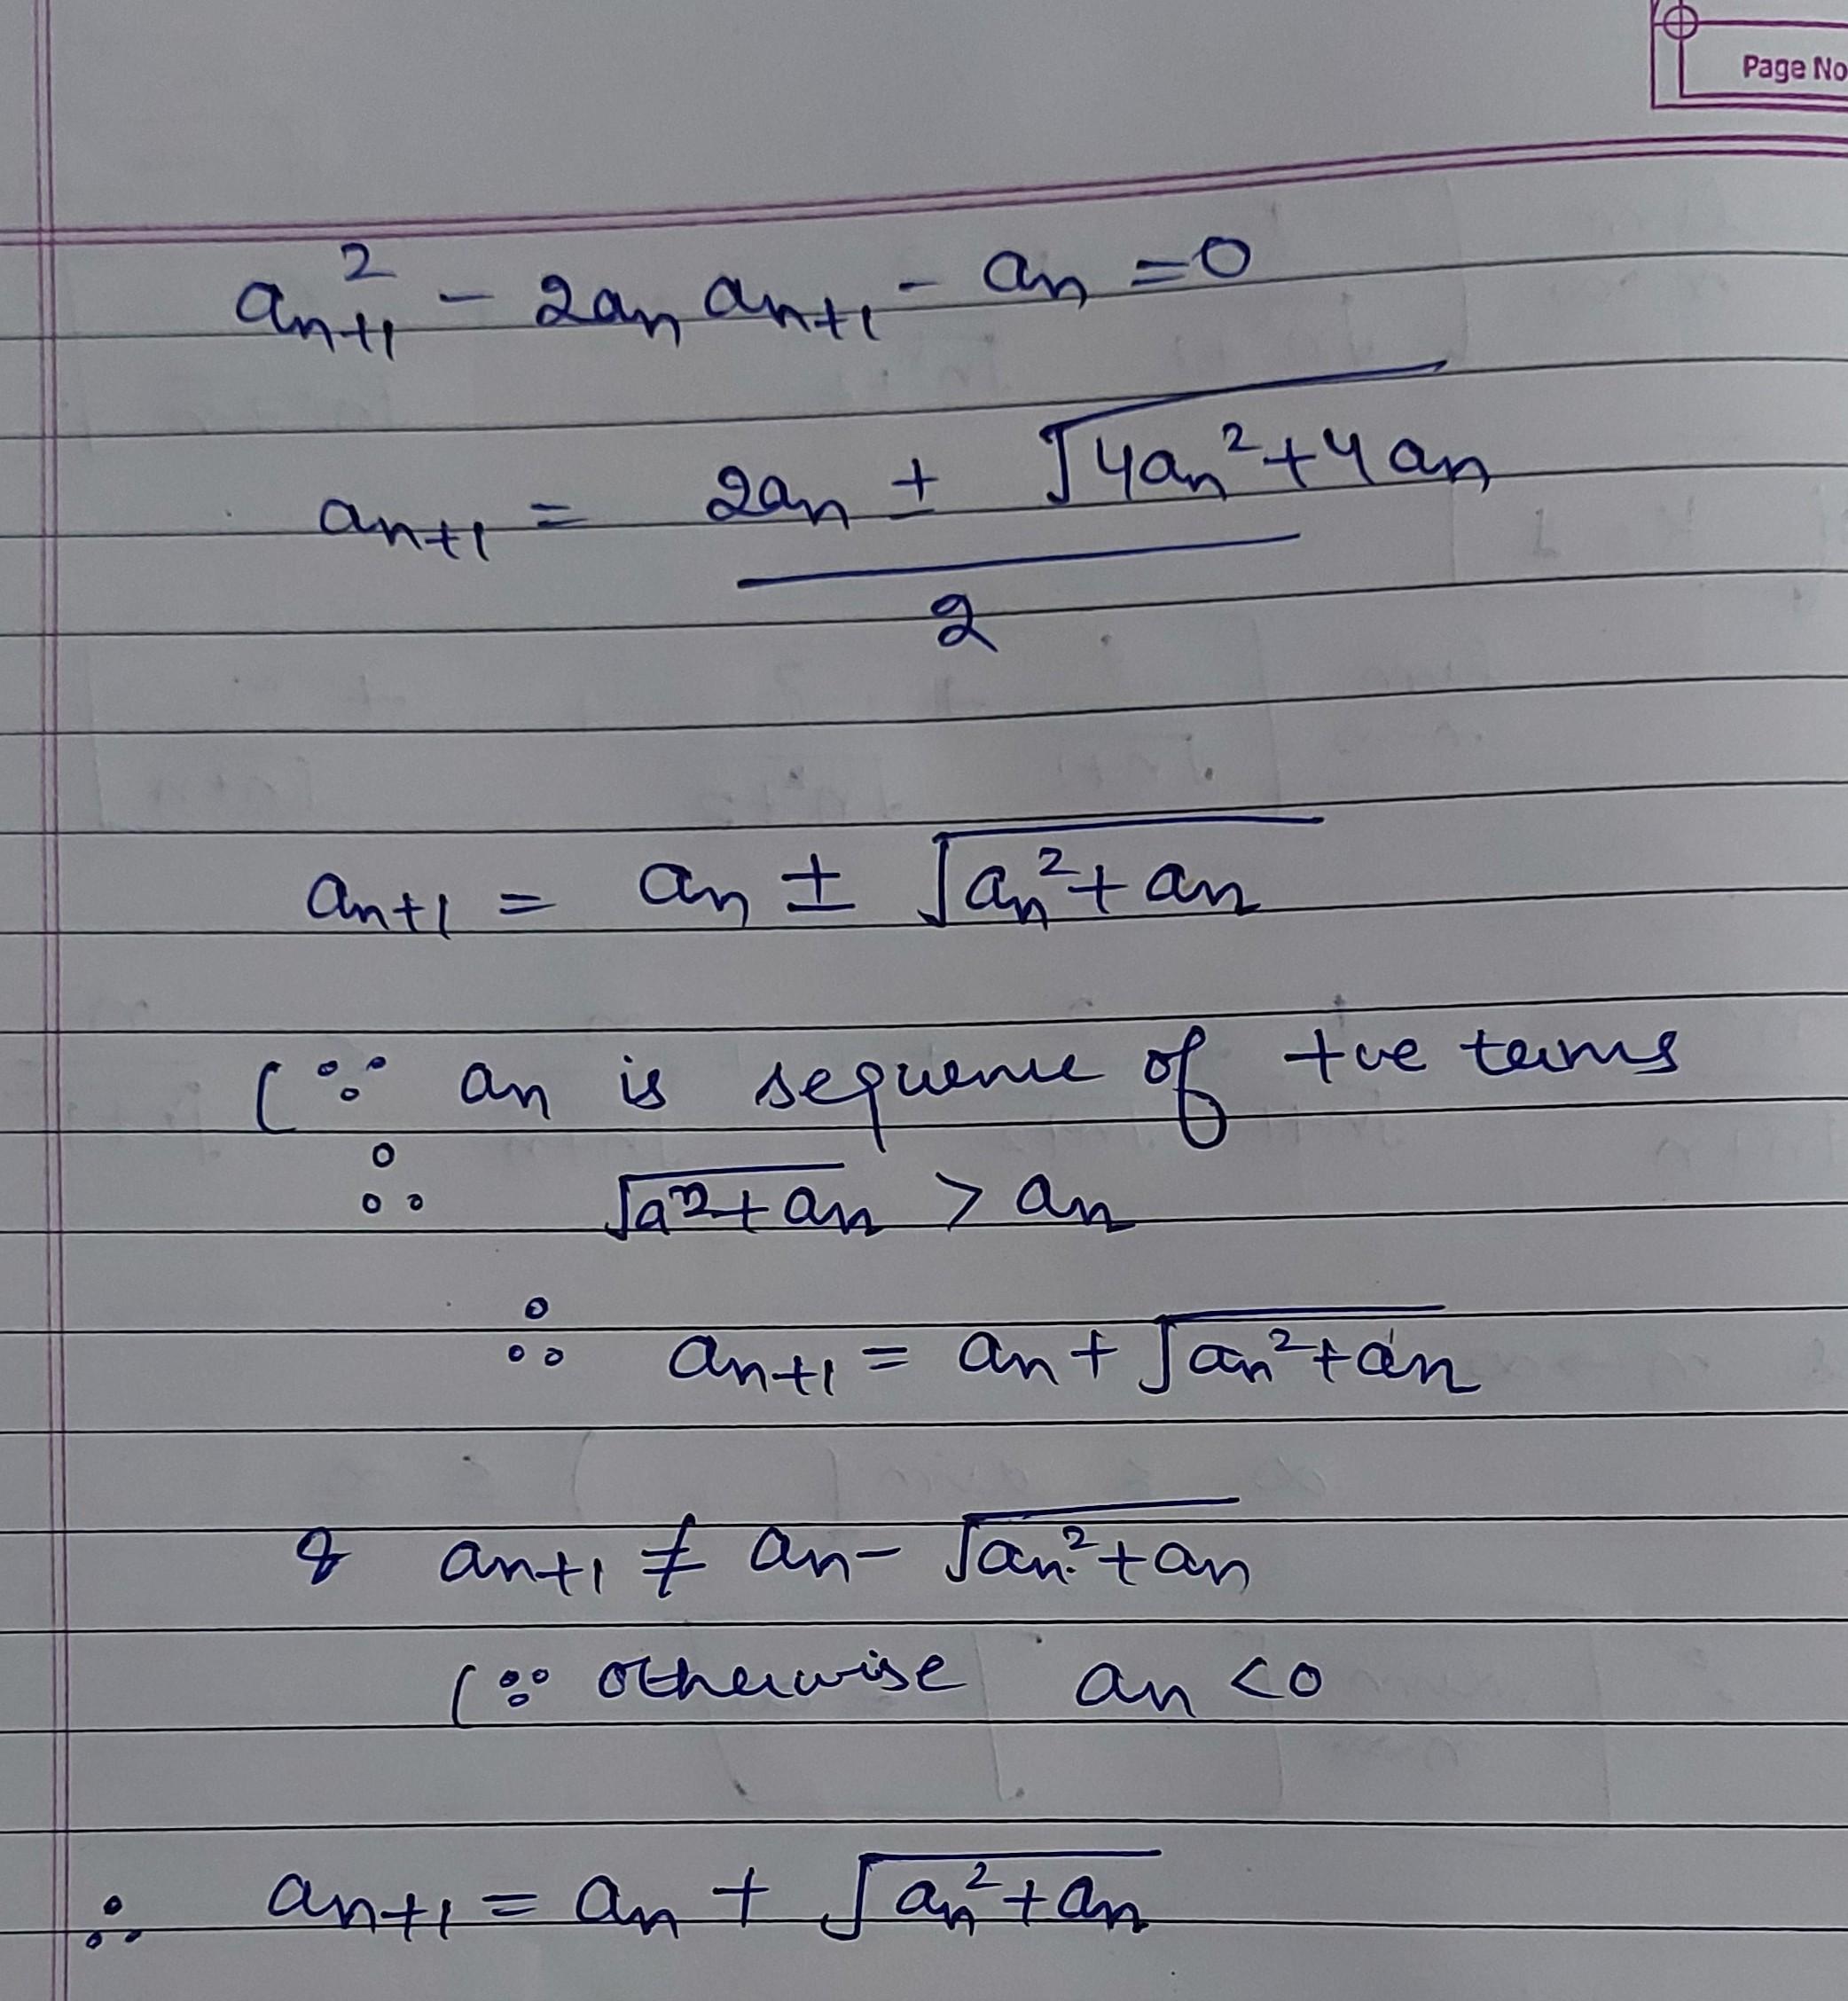 Page No
aₙ₊₁² - 2aₙ aₙ₊₁ - aₙ = 0
aₙ₊₁ = (2aₙ ± √(4aₙ² + 4aₙ)) / 2
aₙ₊₁ = aₙ ± √(aₙ² + aₙ)
(∵ aₙ is sequence of +ve terms
∴ √(a² + aₙ) > aₙ
∴ aₙ₊₁ = aₙ + √(aₙ² + aₙ)
& aₙ₊₁ ≠ aₙ - √(aₙ² + aₙ)
(∵ otherwise aₙ < 0
∴ aₙ₊₁ = aₙ + √(aₙ² + aₙ)